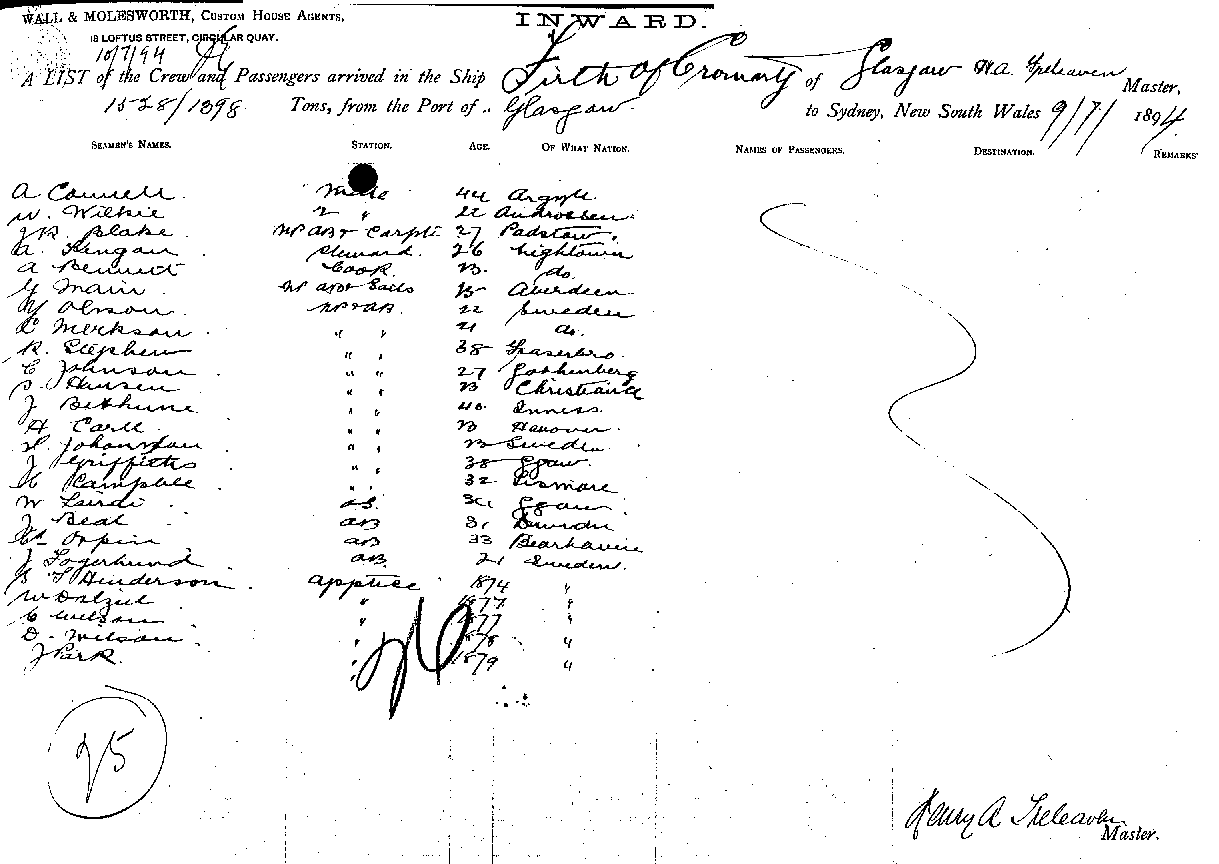 WALL & MOLESWORTH, CUSTOM HOUSE AGENTS,
INWARD.
18 LOFTUS STREET, CIRCULAR QUAY.
10/7/94
A LIST of the Crew and Passengers arrived in the Ship Firth of Cromarty of Glasgow H.A. Treleaven Master,
1528/1398 Tons, from the Port of Glasgow to Sydney, New South Wales 9/7/ 1894
SEAMEN'S NAMES. STATION. AGE. OF WHAT NATION. NAMES OF PASSENGERS. DESTINATION. REMARKS
A Connell Mate 44 Argyle
W. Wilkie 2 " 22 Androssen
J.R. Blake AB & Carpt 27 Padstow
A. Steward 26 Lightown
A Bennett Cook 23 do
G Main AB & Sails Aberdeen
Olsson 22 Sweden
21 do
R. Stephen " " 38 Fraserbro
C Johnson " " 27 Gothenberg
Hansen " " 23 Christiana
J Bethune " " 40 Inness
H Carll " " 23 Hanover
Johansson " " 23 Sweden
J Griffiths " " 38 Ggow
Campbell " " 32 Lismore
W AB Ggow
J Beal AB 31 Sweden
Orpin AB 33 Bearhaven
J Fogerlund AB 21 Sweden
Henderson Apptice 1874 "
W Dalziel " 1877 "
C Wilson " 1877 "
D. Wilson " 1878 "
J Park " 1879 "
25
Henry A Treleaven
Master.